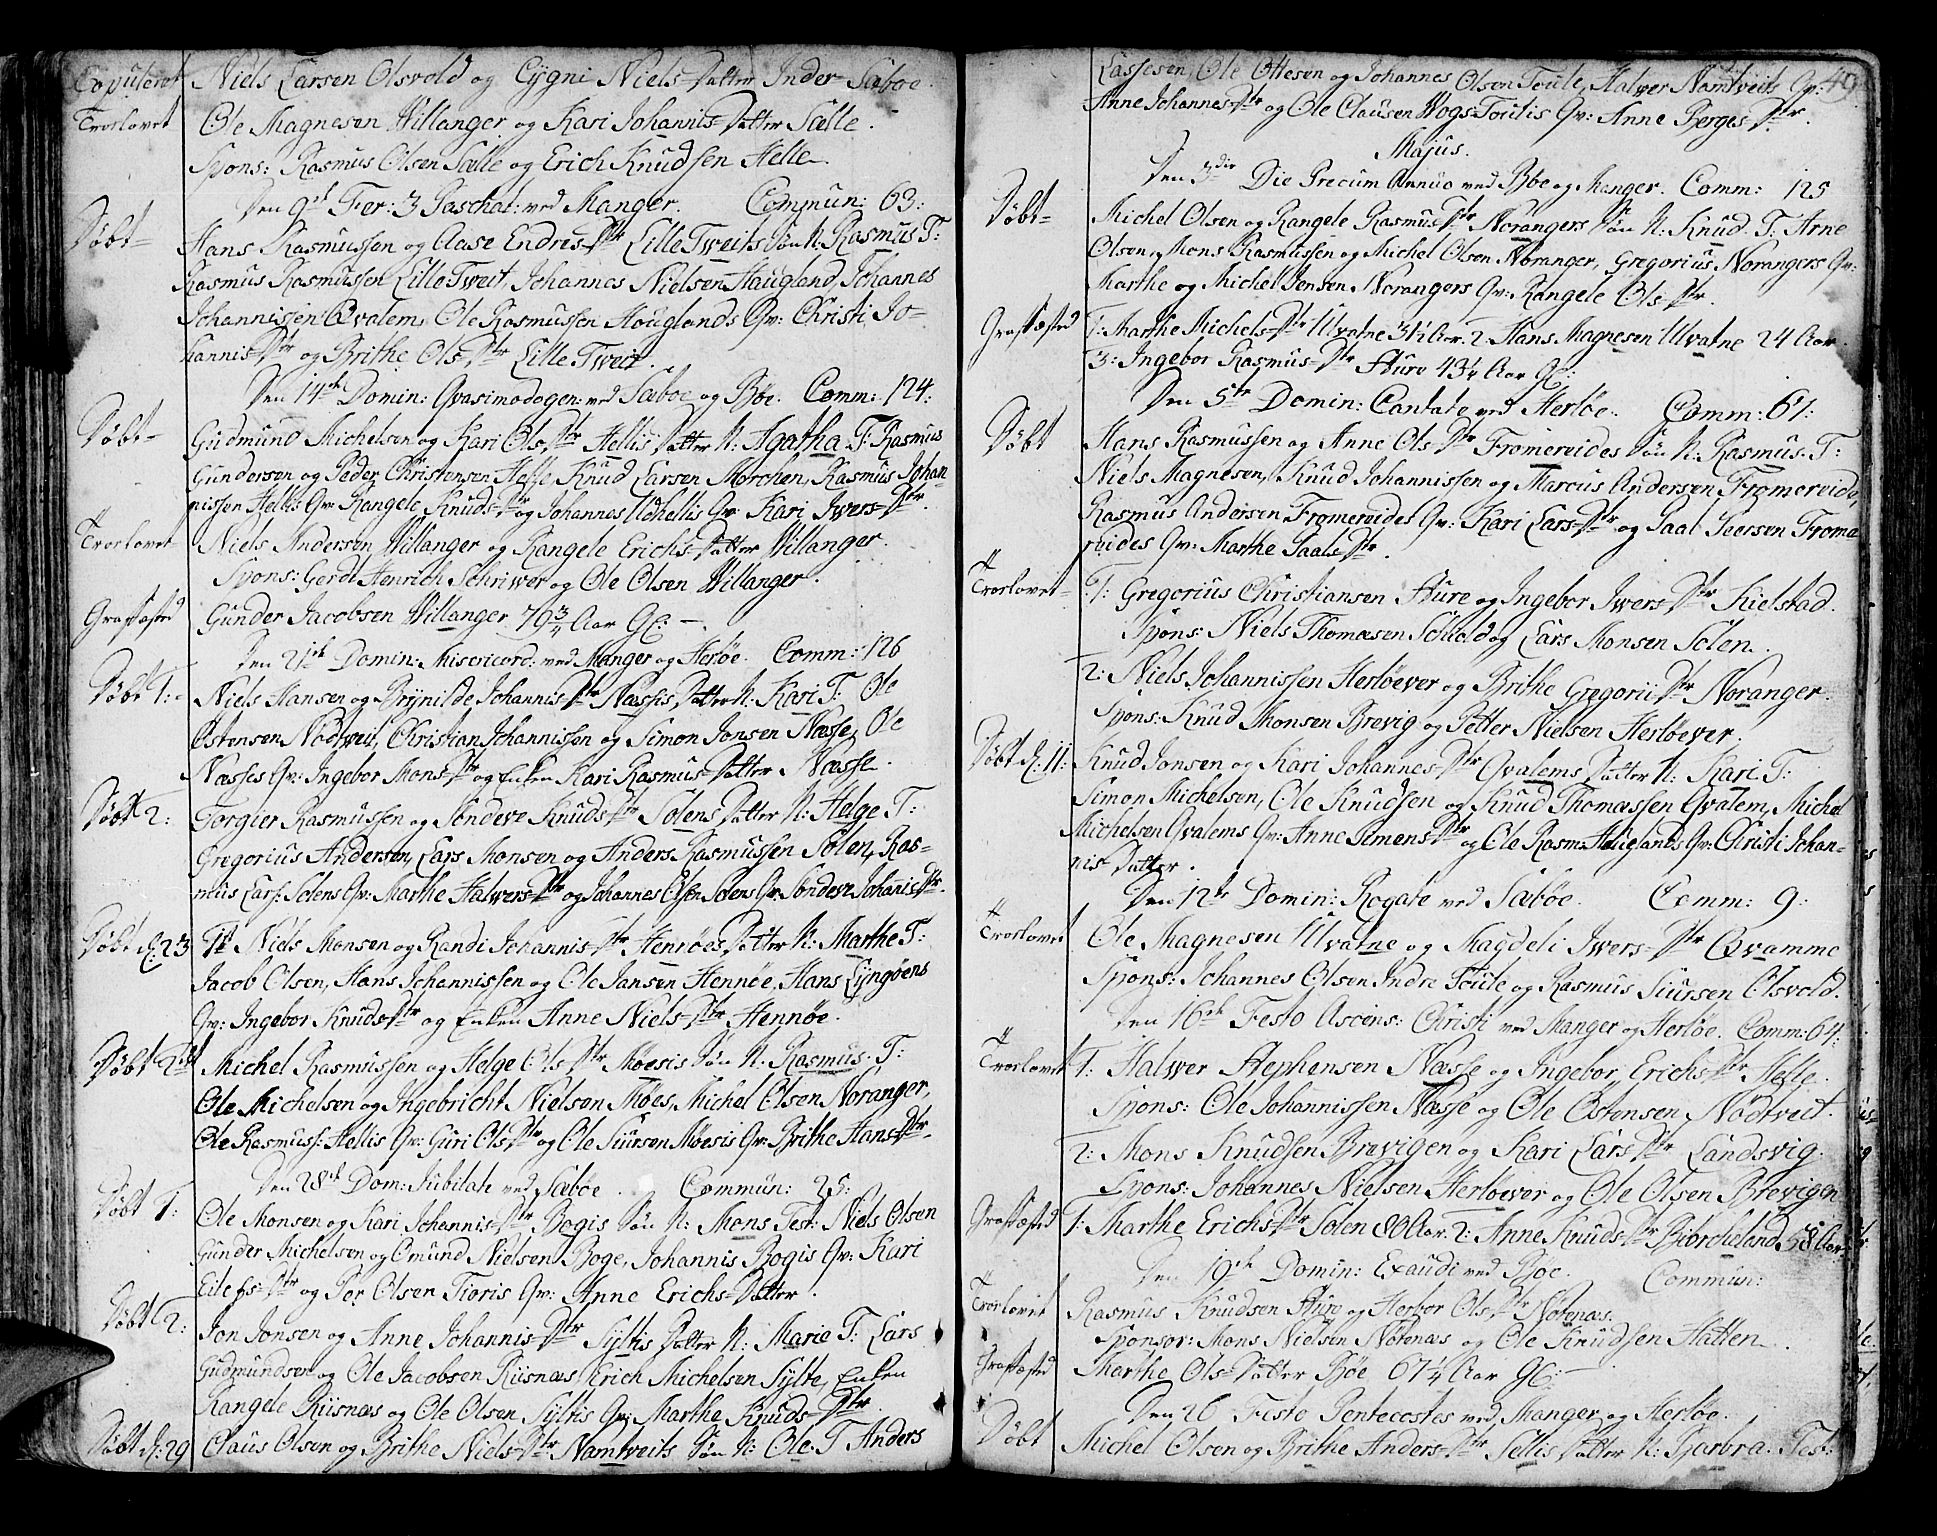 Copuleret Niels Larsen Olsvold og Cygni Niels-Datter Inder Sæboe.
Trorlovet Ole Magnesen Willanger og Kari Johannis-Datter Sælle.
Spons: Rasmus Olsen Sælle og Erich Knudsen Helle.
Den 9de Fer: 3 Paschat: ved Manger. Commun: 63:
Døbt- Hans Rasmussen og Aase Endres-Dtr Lille Tweits Søn N: Rasmus T:
Rasmus Rasmussen Lille Tweit, Johannes Nielsen Haugland, Johannes
Johannissen Qvalem, Ole Rasmussen Houglands Qv: Christi Jo-
hannis-Dtr og Brithe Ols-Dtr Lille Tweit.
Den 14de Domin: Qvasimodogen: ved Sæboe og Bøe. Comm: 124:
Døbt- Gudmund Michelsen og Kari Ols-Dtr Hellis Datter N: Agatha T: Rasmus
Gundersen og Peder Christensen Helle, Knud Larsen Morchen, Rasmus Johan
nissen Hellis Qv: Rangele Knuds-Dtr og Johannes Udhellis Qv: Kari Iwers-Dtr.
Trorlovet Niels Andersen Willanger og Rangele Erichs-Datter Willanger.
Spons: Gerdt Henrich Schriwer og Ole Olsen Willanger.
Graffæsted Gunder Jacobsen Willanger 79 3/4 Aar G:
Den 21de Domin: Misericord: ved Manger og Herløe. Comm: 126
Døbt 1: Niels Hansen og Brynilde Johannis-Dtr Næssis Datter N: Kari T: Ole
Østensen Nødtweit, Christian Johannissen og Simon Jonsen Næsse, Ole
Næsses Qv: Ingebor Mons-Dtr og Enken Kari Rasmus-Datter Næsse.
Døbt 2: Torgier Rasmussen og Søndeve Knuds-Dtr Solens Datter N: Helge T:
Gregorius Andersen, Lars Monsen og Anders Rasmussen Solen, Ras-
mus Lars: Solens Qv: Marthe Halwers-Dtr og Johannes Olsen Solens Qv: Søndeve Johanis-Dtr.
Døbt d: 23 Niels Monsen og Randi Johannis-Dtr Hennøes Datter N: Marthe T:
Jacob Olsen, Hans Johannissen og Ole Jansen Hennøe, Hans Lyngøens
Qv: Ingebor Knuds-Dtr og Enken Anne Niels-Dtr Hennøe.
Døbt Michel Rasmussen og Helge Ols-Dtr Møesis Søn N: Rasmus. T:
Ole Michelsen og Ingebricht Nielsen Møes, Michel Olsen Noranger,
Ole Rasmuss: Hellis Qv: Guri Ols-Dtr og Ole Siursen Møesis Qv: Brithe Hans-Dtr.
Den 28de Dom: Jubilate ved Sæboe. Commun: 25:
Døbt 1: Ole Monsen og Kari Johannis-Dtr Bogis Søn N: Mons Test: Niels Olsen
Gunder Michelsen og Omund Nielsen Boge, Johannis Bogis Qv: Kari
Eilefs-Dtr og Per Olsen Tioris Qv: Anne Erichs-Datter.
Døbt 2: Jon Jonsen og Anne Johannis-Dtr Syltis Datter N: Marie T: Lars
Gudmundsen og Ole Jacobsen Riisnæs Erich Michelsen Sylte, Enken
Rangele Riisnæs og Ole Olsen Syltis Qv: Marthe Knuds-Dtr.
Døbt d: 29 Claus Olsen og Brithe Niels-Dtr Namtveits Søn N: Ole. T Anders
49
Lassesen, Ole Ottesen og Johannes Olson Toule, Halver Namtveits Qv:
Anne Johannes-Dtr og Ole Clausen Hogs-Toulis Qv: Anne Berges-Dtr.
Majus.
Den 3die Die Precum Annuo ved Bøe og Manger. Comm: 125
Døbt- Michel Olsen og Rangele Rasmus-Dtr Norangers Søn N: Knud. T: Arne
Olsen, Mons Rasmussen og Michel Olsen Noranger, Gregorius Norangers Qv:
Marthe og Michel Jensen Norangers Qv: Rangele Ols-Dtr.
Graffæsted 1: Marthe Michels-Dtr Ulvatne 31 1/2 Aar. 2: Hans Magnesen Ulvatne 24 Aar.
3: Ingebor Rasmus-Dtr Hure 43 1/4 Aar G:
Den 5te Domin: Cantate ved Herløe. Comm: 67:
Døbt Hans Rasmussen og Anne Ols-Dtr Fromereides Søn N: Rasmus. T:
Niels Magnesen, Knud Johannissen og Marcus Andersen Fromereide,
Rasmus Andersen Fromereides Qv: Kari Lars-Dtr og Paal Peersen Frome
reides Qv: Marthe Paals-Dtr.
Trorlovet- 1: Gregorius Christiansen Hure og Ingebor Iwers-Dtr Kielstad.
Spons: Niels Thomæsen Schold og Lars Monsen Solen.
2: Niels Johannissen Herløever og Brithe Gregorii-Dtr Noranger.
Spons: Knud Monsen Brevig og Petter Nielsen Herløever.
Døbt d: 11: Knud Jonsen og Kari Johannes-Dtr Qvalems Datter N: Kari T:
Simon Michelsen, Ole Knudsen og Knud Thomæssen Qvalem, Michel
Michelsen Qvalems Qv: Anne Simens-Dtr og Ole Rasm: Houglands Qv: Christi Johan-
nis-Datter.
Den 12te Domin: Rogate ved Sæbøe. Comm: 9:
Trorlovet Ole Magnesen Ulvatne og Magdeli Iwers-Dtr Qvamme
Spons: Johannes Olsen Indre Toule og Rasmus Siursen Olsvold.
Den 16de Festo Ascens: Christi ved Manger og Herløe. Comm: 64:
Trorlovet 1: Halwer Stephensen Næsse og Ingebor Erichs-Dtr Helle.
Spons: Ole Johannissen Næsse og Ole Østensen Nødtveit.
2: Mons Knudsen Brevigen og Kari Lars-Dtr Landsvig.
Spons: Johannes Nielsen Herløever og Ole Olsen Brevigen
Graffæsted 1: Marthe Erichs-Dtr Solen 80 Aar. 2: Anne Knuds-Dtr Biørcheland 58 Aar
Den 19de Domin: Exaudi ved Bøe. Commun:
Trorlovet Rasmus Knudsen Hure og Herbor Ols-Dtr Norenæs.
Sponsor: Mons Nielsen Norenæs og Ole Knudsen Hatten.
Graffæsted Marthe Ols-Datter Bøe 67 1/4 Aar G:
Den 26 Festo Pentecostes ved Manger og Herløe.
Døbt Michel Olsen og Brithe Anders-Dtr Sellis Datter N: Barbra. Test: